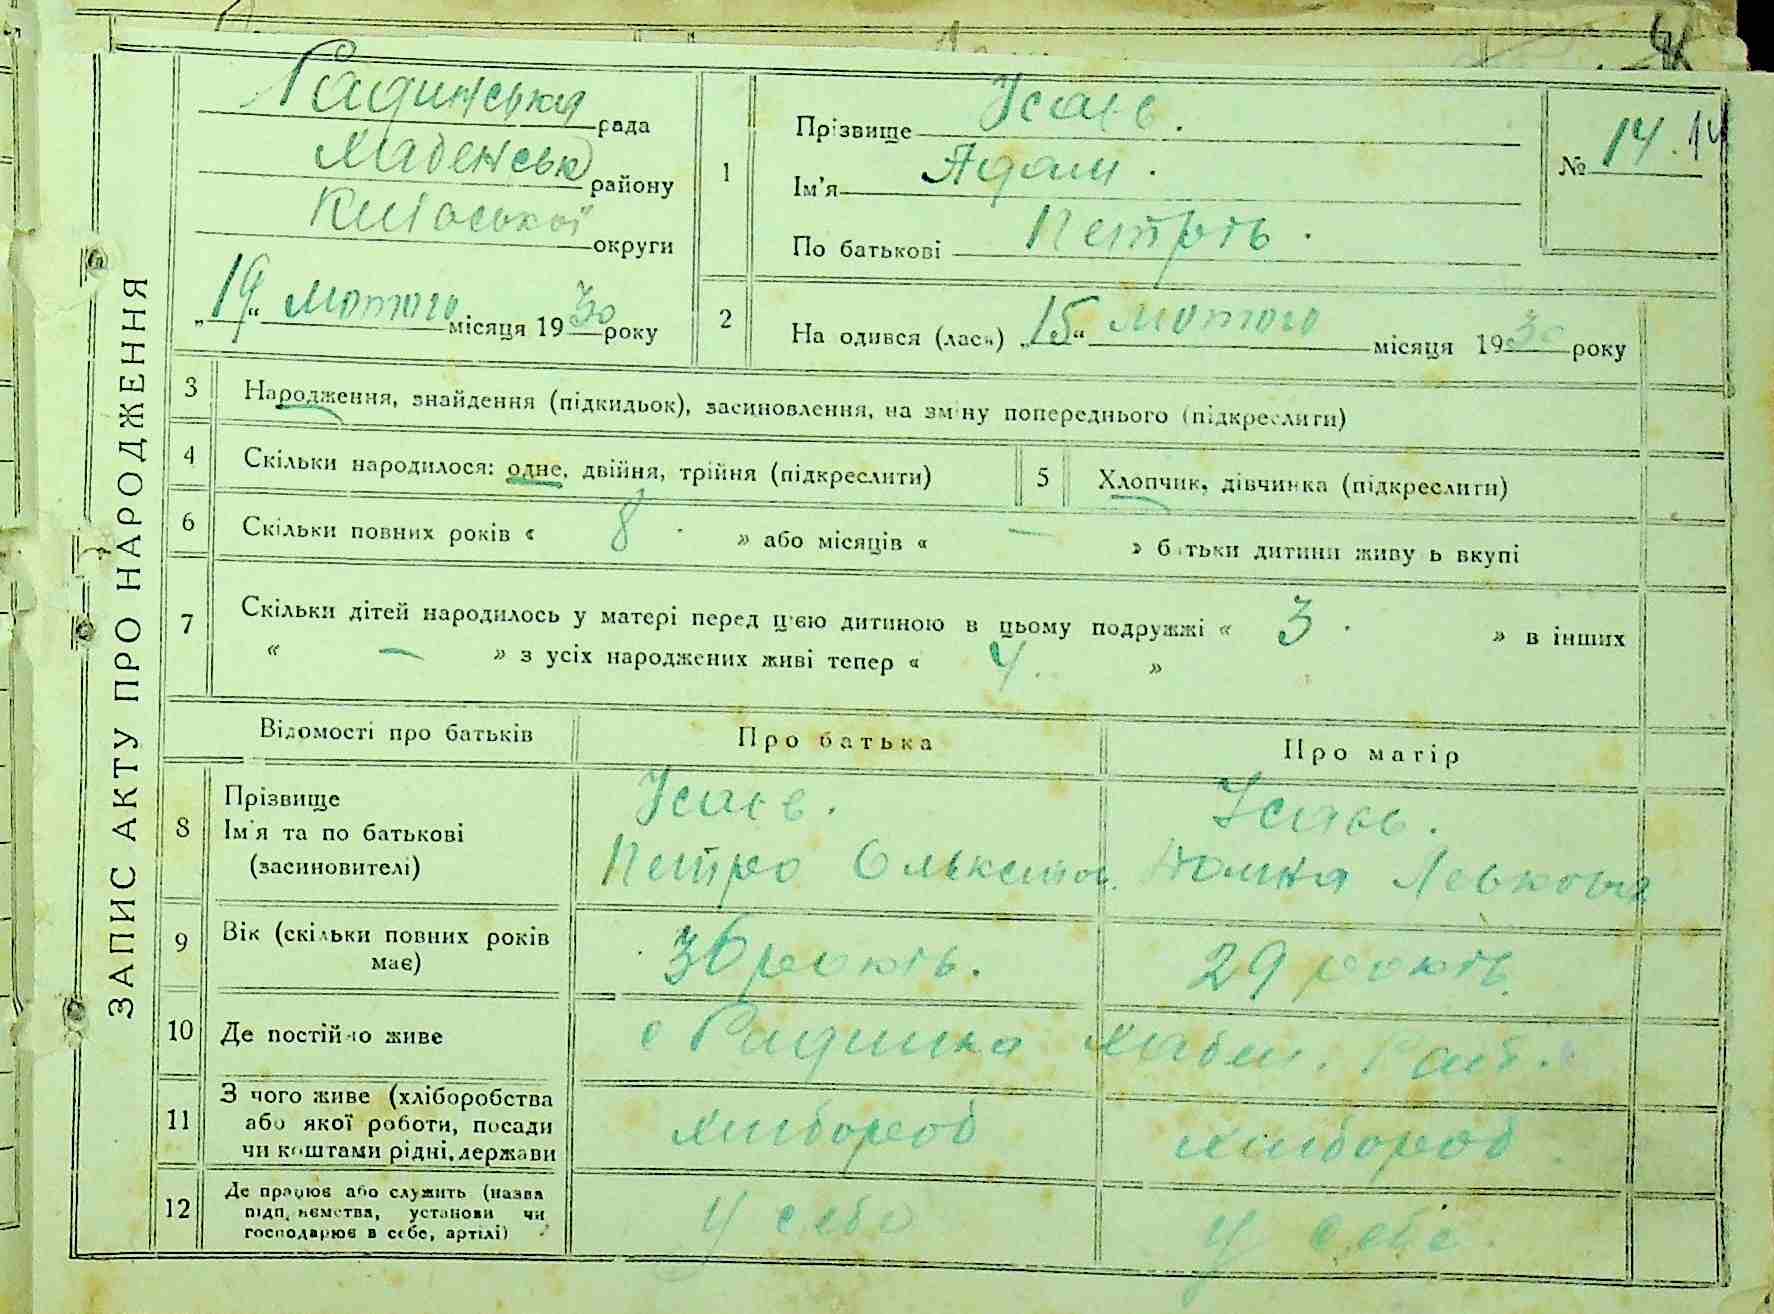 ЗАПИС АКТУ ПРО НАРОДЖЕННЯ
Радинська рада
району
округи
„19“ лютого місяця 1930 року
1
Прізвище Усаєв.
Ім'я Адам.
По батькові
№ 14. 14
2
На одився (лась) „15“ лютого місяця 1930 року
3
Народження, знайдення (підкидьок), засиновлення, на зміну попереднього (підкреслити)
4
Скільки народилося: одне, двійня, трійня (підкреслити)
5
Хлопчик, дівчинка (підкреслити)
6
Скільки повних років « 8 . » або місяців « — » батьки дитини живу ь вкупі
7
Скільки дітей народилось у матері перед цією дитиною в цьому подружжі « 3 . » в інших
« — » з усіх народжених живі тепер « 4. »
Відомості про батьків
Про батька
Про матір
8
Прізвище
Ім'я та по батькові
(засиновителі)
Усаєв.
Петро
Усаєв.
Левковна
9
Вік (скільки повних років
має)
36 років.
29 років.
10
Де постійно живе
с Радинка
11
З чого живе (хліборобства
або якої роботи, посади
чи коштами рідні, держави
хлібороб
хлібороб
12
Де працює або служить (назва
підп. ємства, установи чи
господарює в себе, артілі)
У себе
У себе